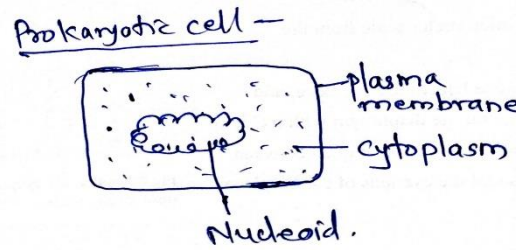 Prokaryotic cell -
plasma
membrane
cytoplasm
Nucleoid.